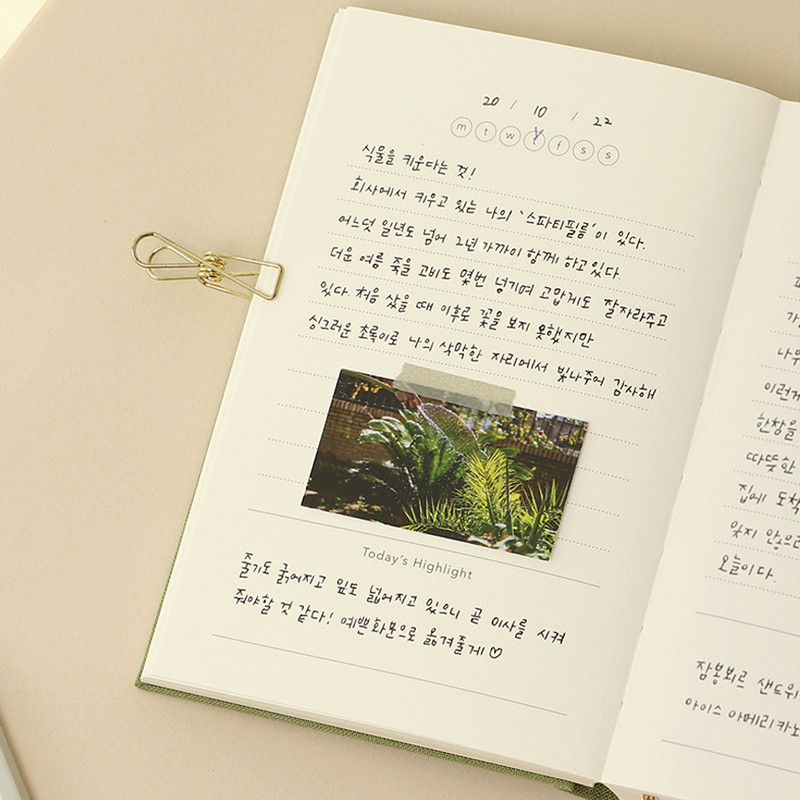 20 / 10 / 22
m t w t f s s
식물을 키운다는 것!
회사에서 키우고 있는 나의 '스파티필름'이 있다.
어느덧 일년도 넘어 2년 가까이 함께 하고 있다.
더운 여름 죽을 고비도 몇번 넘기며 고맙게도 잘 자라주고
있다. 처음 샀을 때 이후로 꽃을 보지 못했지만
싱그러운 초록이로 나의 삭막한 자리에서 빛나주어 감사해
Today's Highlight
줄기도 굵어지고 잎도 넓어지고 있으니 곧 이사를 시켜
줘야할 것 같다! 예쁜 화분으로 옮겨줄게♡
나무
이런게
한참을
따뜻한
집에 도착
잊지 않으
오늘이다.
잠봉뵈르 샌드위
아이스 아메리카노